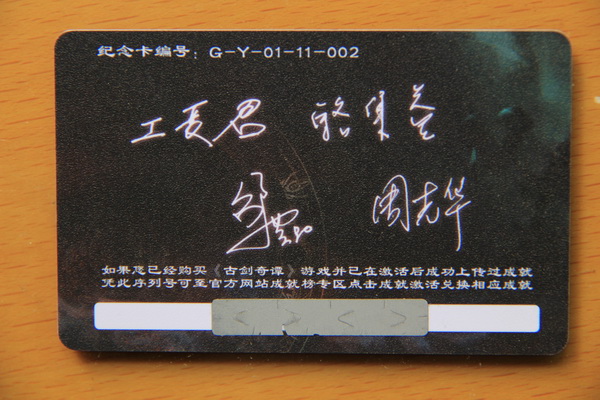 纪念卡编号：G-Y-01-11-002
工长君
周志华
如果您已经购买《古剑奇谭》游戏并已在激活后成功上传过成就
凭此序列号可至官方网站成就榜专区点击成就激活兑换相应成就